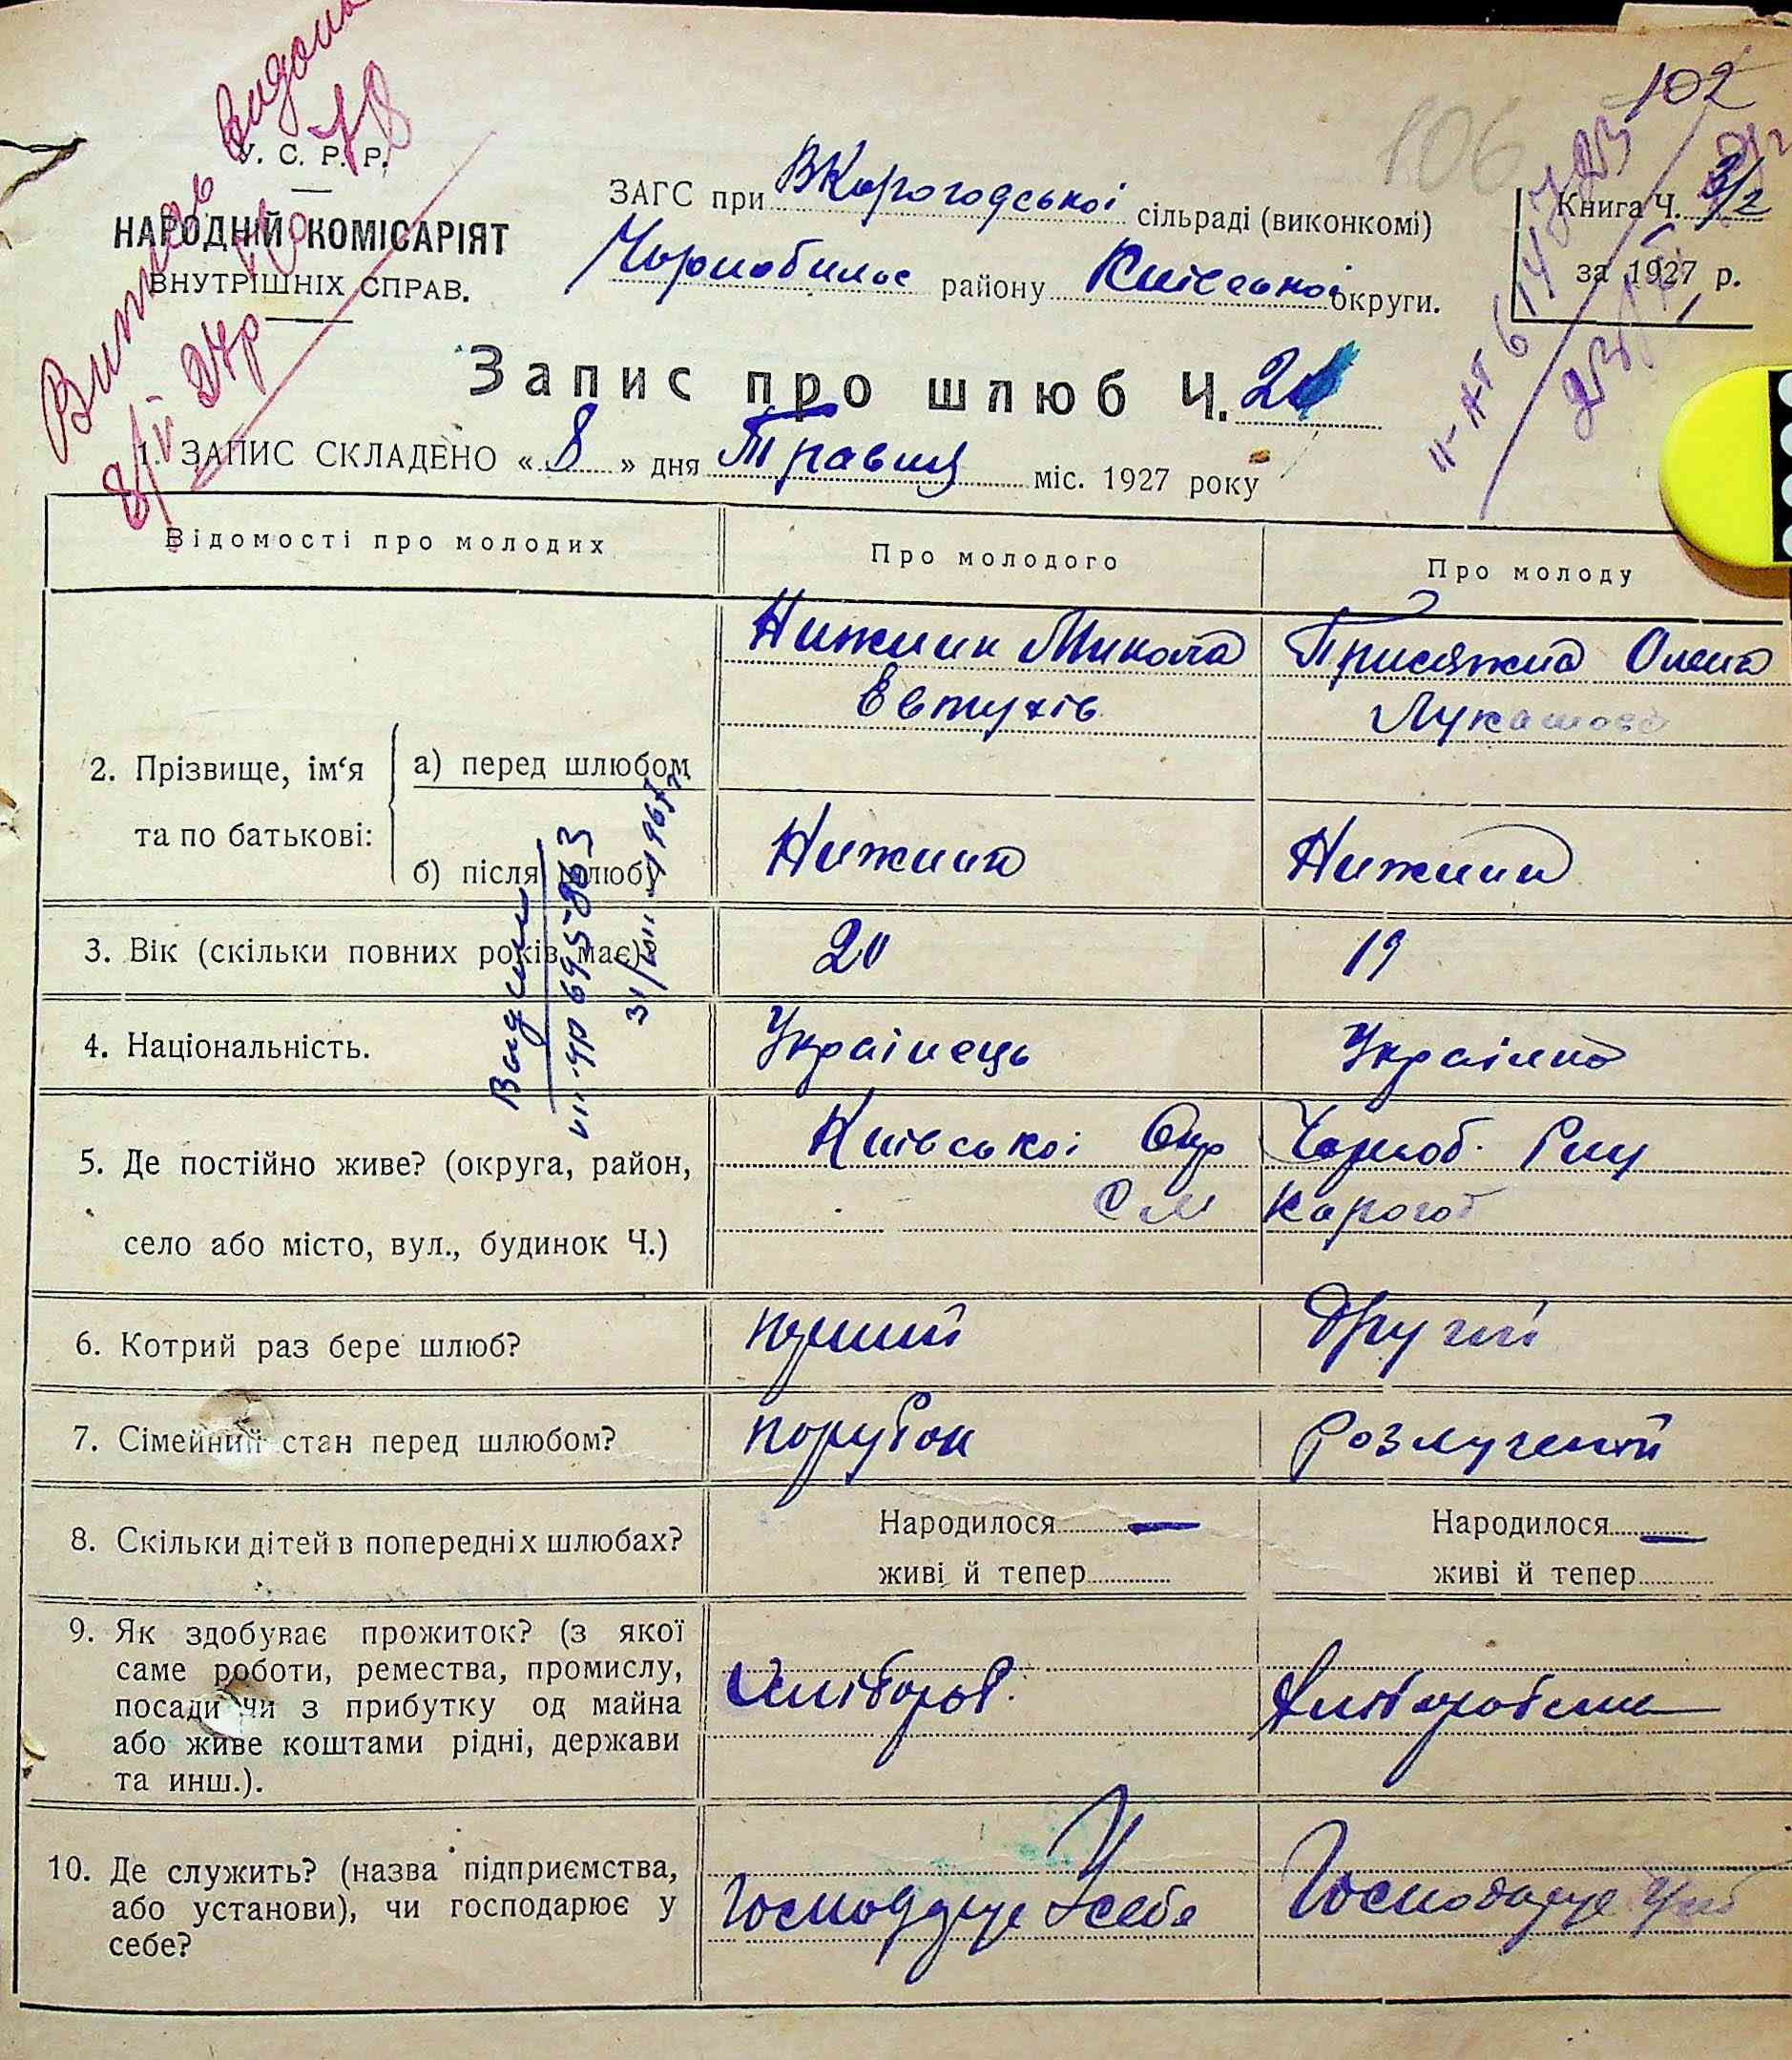 Витяг видано
8/V 27р
102
106
У. С. Р. Р.
НАРОДНІЙ КОМІСАРІЯТ
ВНУТРІШНІХ СПРАВ.
ЗАГС при ВКорогодської сільраді (виконкомі)
Чорнобильс району Київської округи.
Книга Ч. 3/2
за 1927 р.
Запис про шлюб Ч. 20
1. ЗАПИС СКЛАДЕНО « 8 » дня Травня міс. 1927 року
Відомості про молодих
Про молодого
Про молоду
2. Прізвище, ім‘я та по батькові:
а) перед шлюбом
Нижник Микола
Евтухів
Присяжна Олена
Лукашова
б) після шлюбу
Нижник
Нижник
3. Вік (скільки повних років має)
20
19
4. Національність.
Українець
Українка
5. Де постійно живе? (округа, район,
село або місто, вул., будинок Ч.)
Київської Окр Чорноб. Рну
См Карогод
6. Котрий раз бере шлюб?
перший
Другий
7. Сімейний стан перед шлюбом?
парубок
Розлучений
8. Скільки дітей в попередніх шлюбах?
Народилося —
живі й тепер
Народилося —
живі й тепер
9. Як здобуває прожиток? (з якої
саме роботи, ремества, промислу,
посади чи з прибутку од майна
або живе коштами рідні, держави
та инш.).
Хлібороб.
Хлібороб
10. Де служить? (назва підприємства,
або установи), чи господарює у
себе?
Господарує
У себе
Господарує